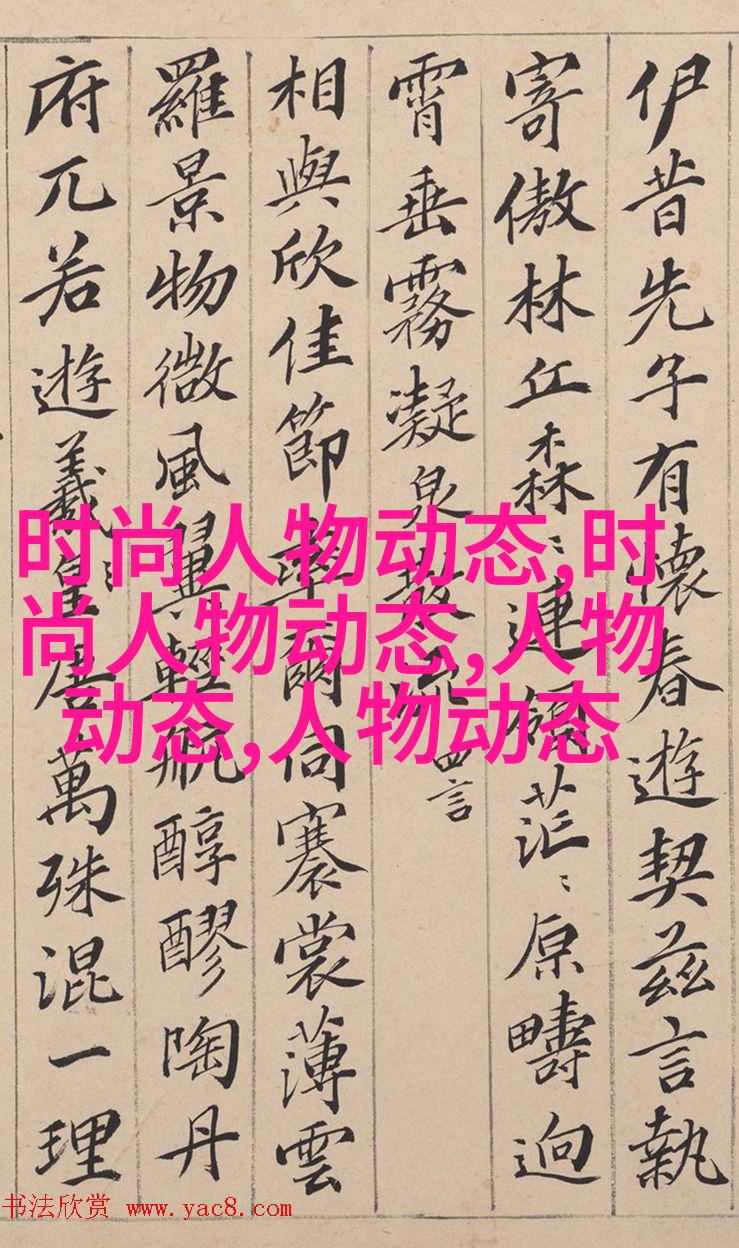 伊昔先子有懷春遊契茲言執
寄傲林丘森〻連嶺茫〻原疇逈
霄垂霧凝泉散流 四言
相與欣佳節率爾同褰裳薄雲
羅景物微風翼輕航醇醪陶丹
府兀若遊羲皇唐萬殊混一理
时尚人物动态,时
尚人物动态,人物
动态,人物动态
书法欣赏 www.yac8.com